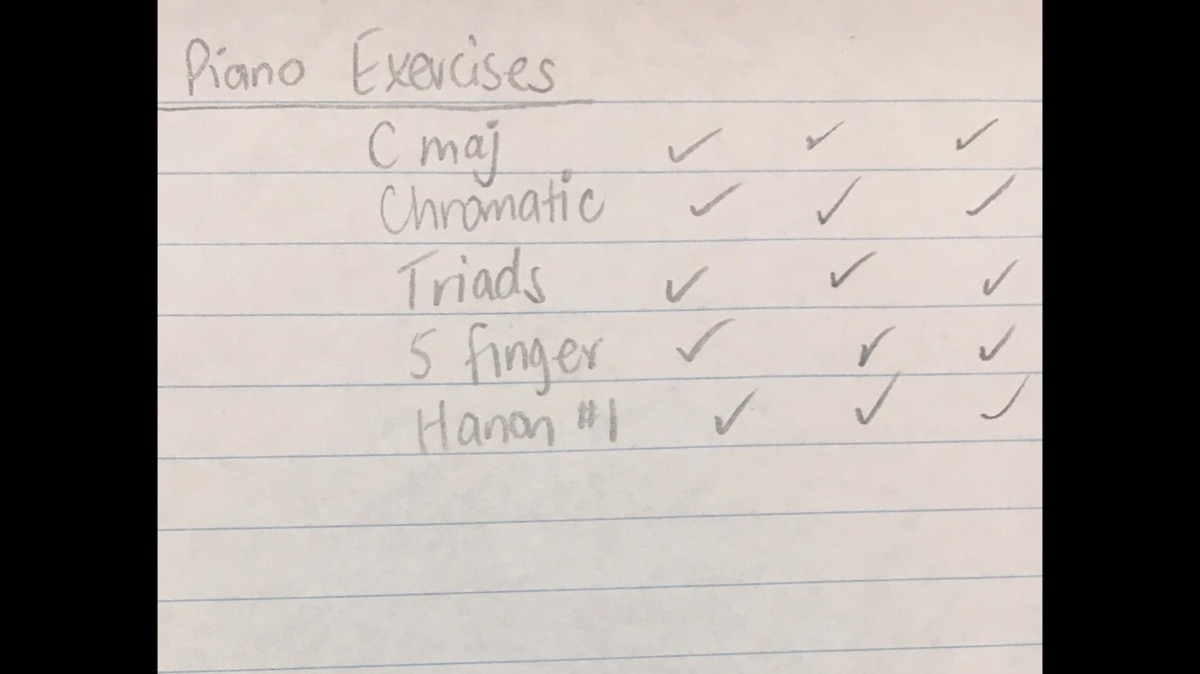 Piano Exercises
C maj ✓ ✓ ✓
Chromatic ✓ ✓ ✓
Triads ✓ ✓ ✓
5 finger ✓ ✓ ✓
Hanon #1 ✓ ✓ ✓